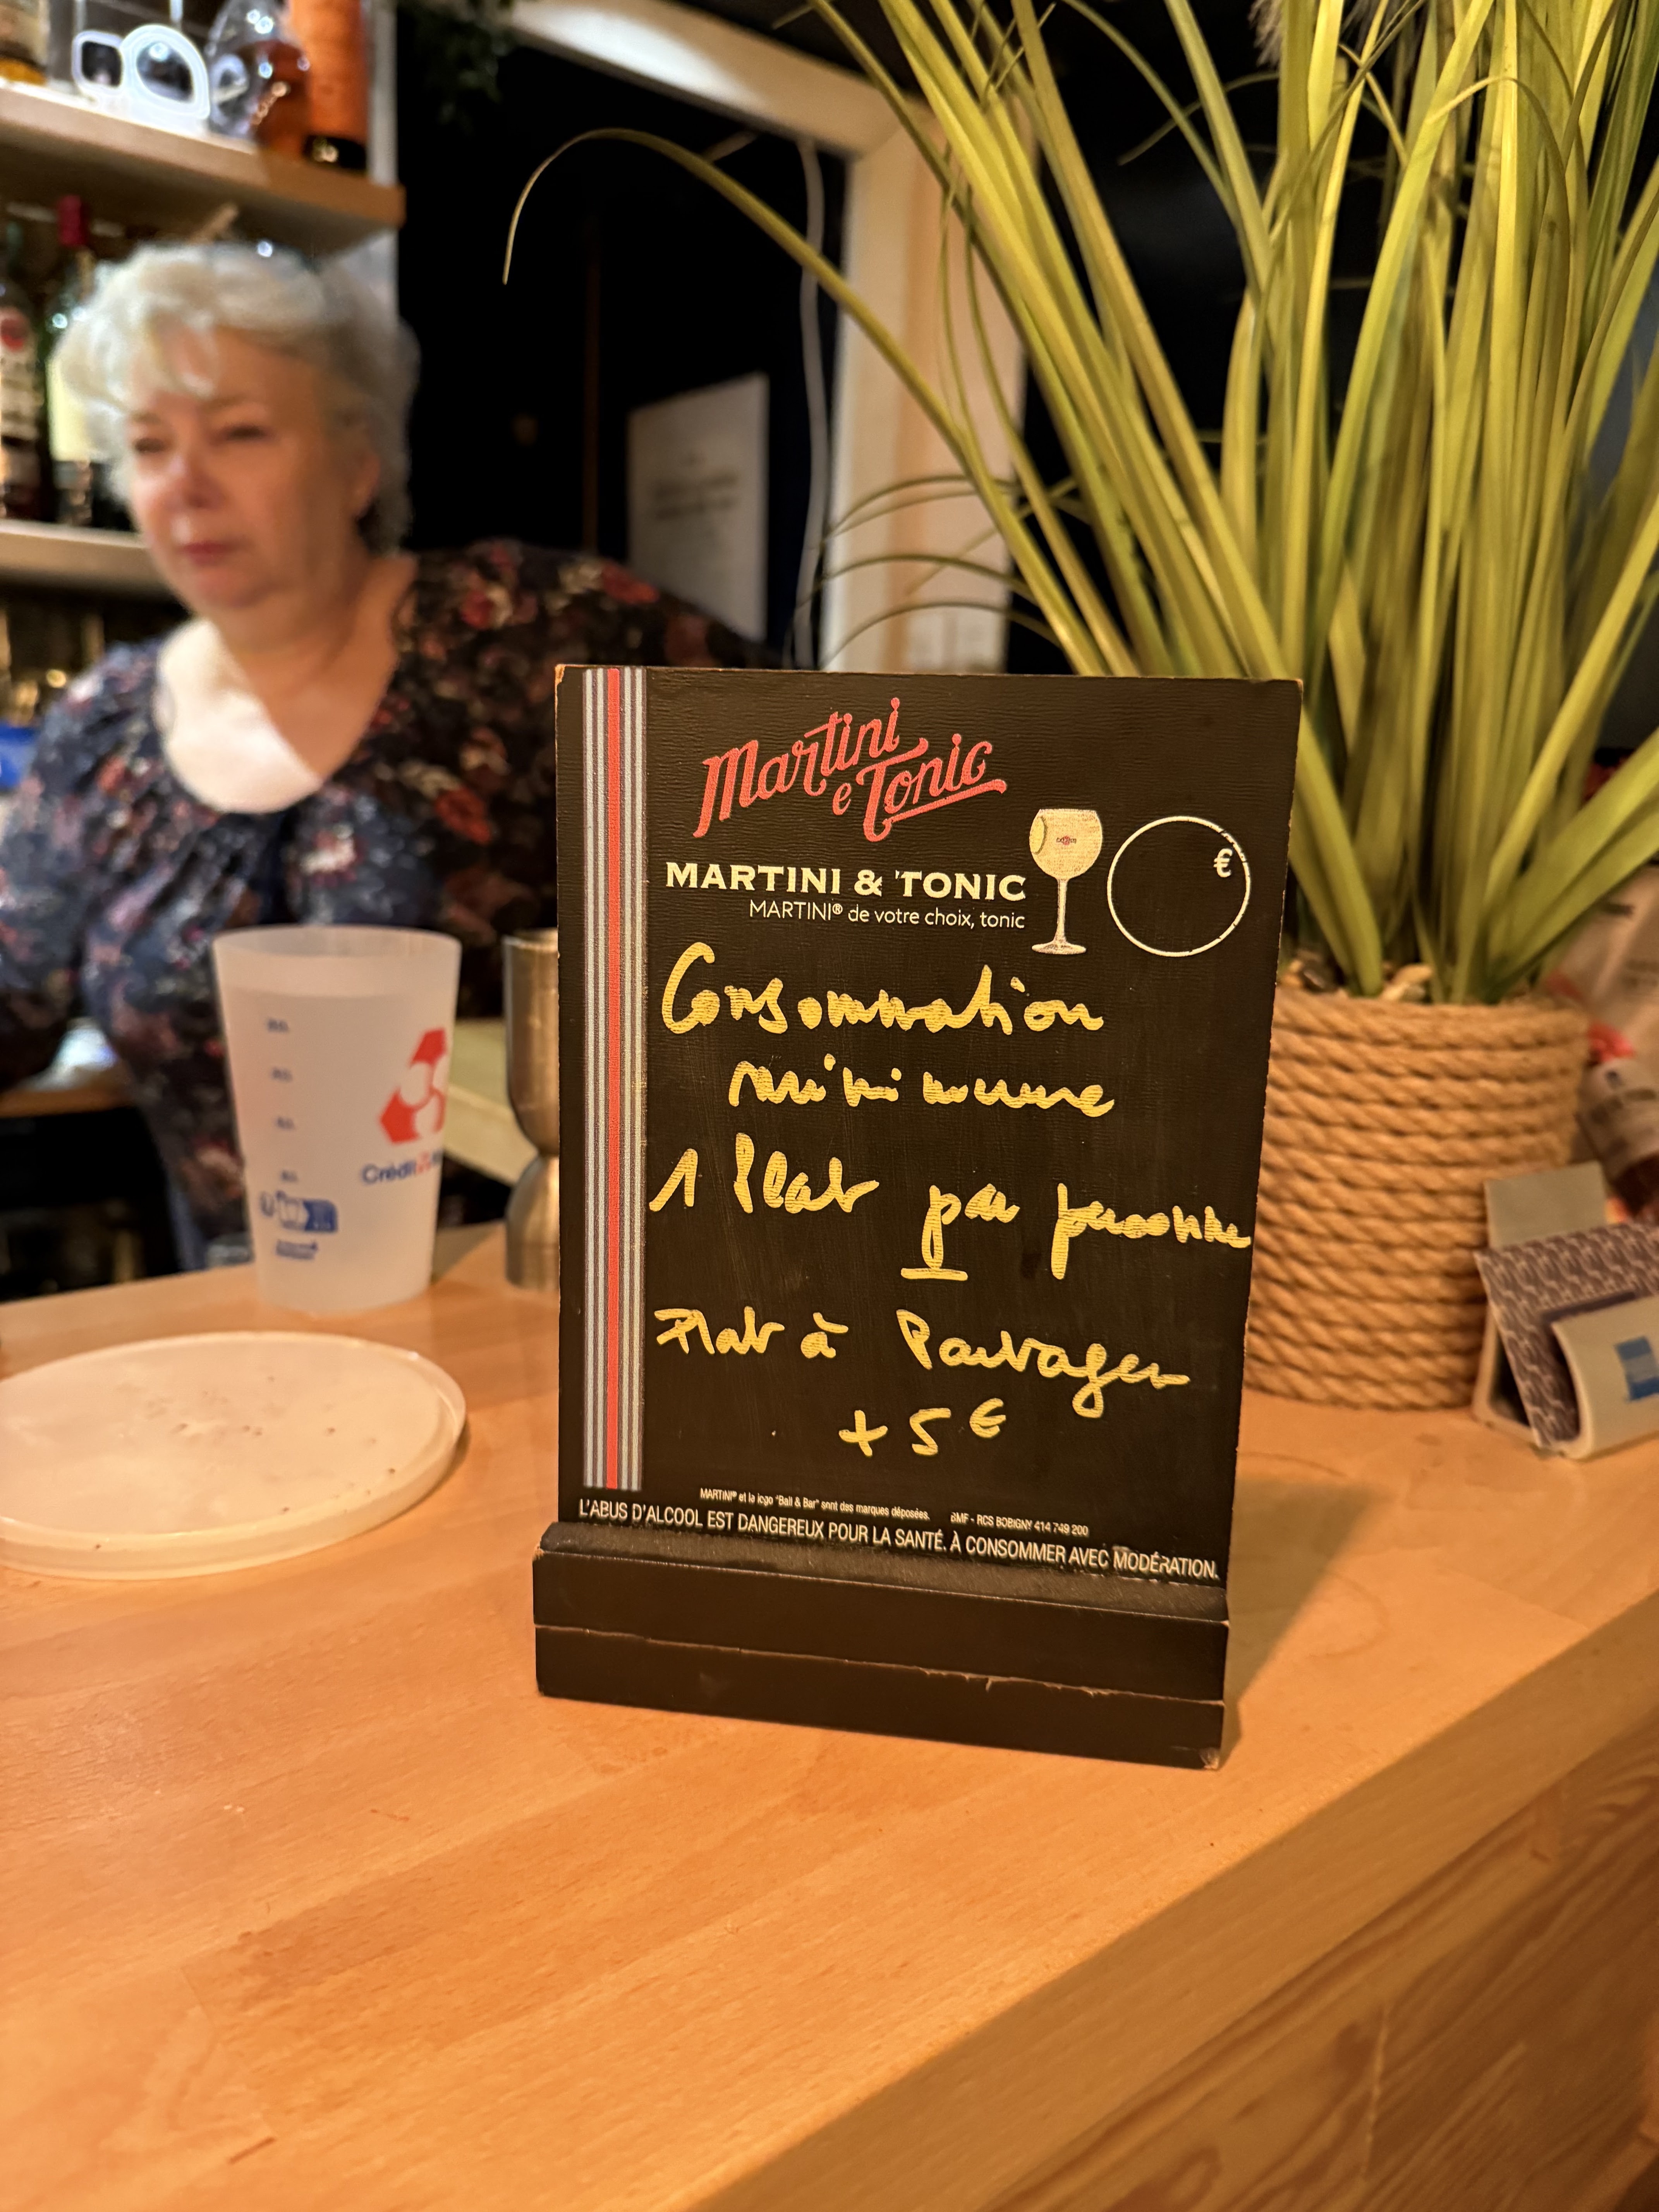 Martini
e Tonic
MARTINI & TONIC
MARTINI® de votre choix, tonic
€
Consommation
minimume
1 Plat par personne
Plat à Partager
+ 5 €
MARTINI® et le logo "Ball & Bar" sont des marques déposées. BMF - RCS BOBIGNY 414 749 200
L'ABUS D'ALCOOL EST DANGEREUX POUR LA SANTÉ. À CONSOMMER AVEC MODÉRATION.
Crédit